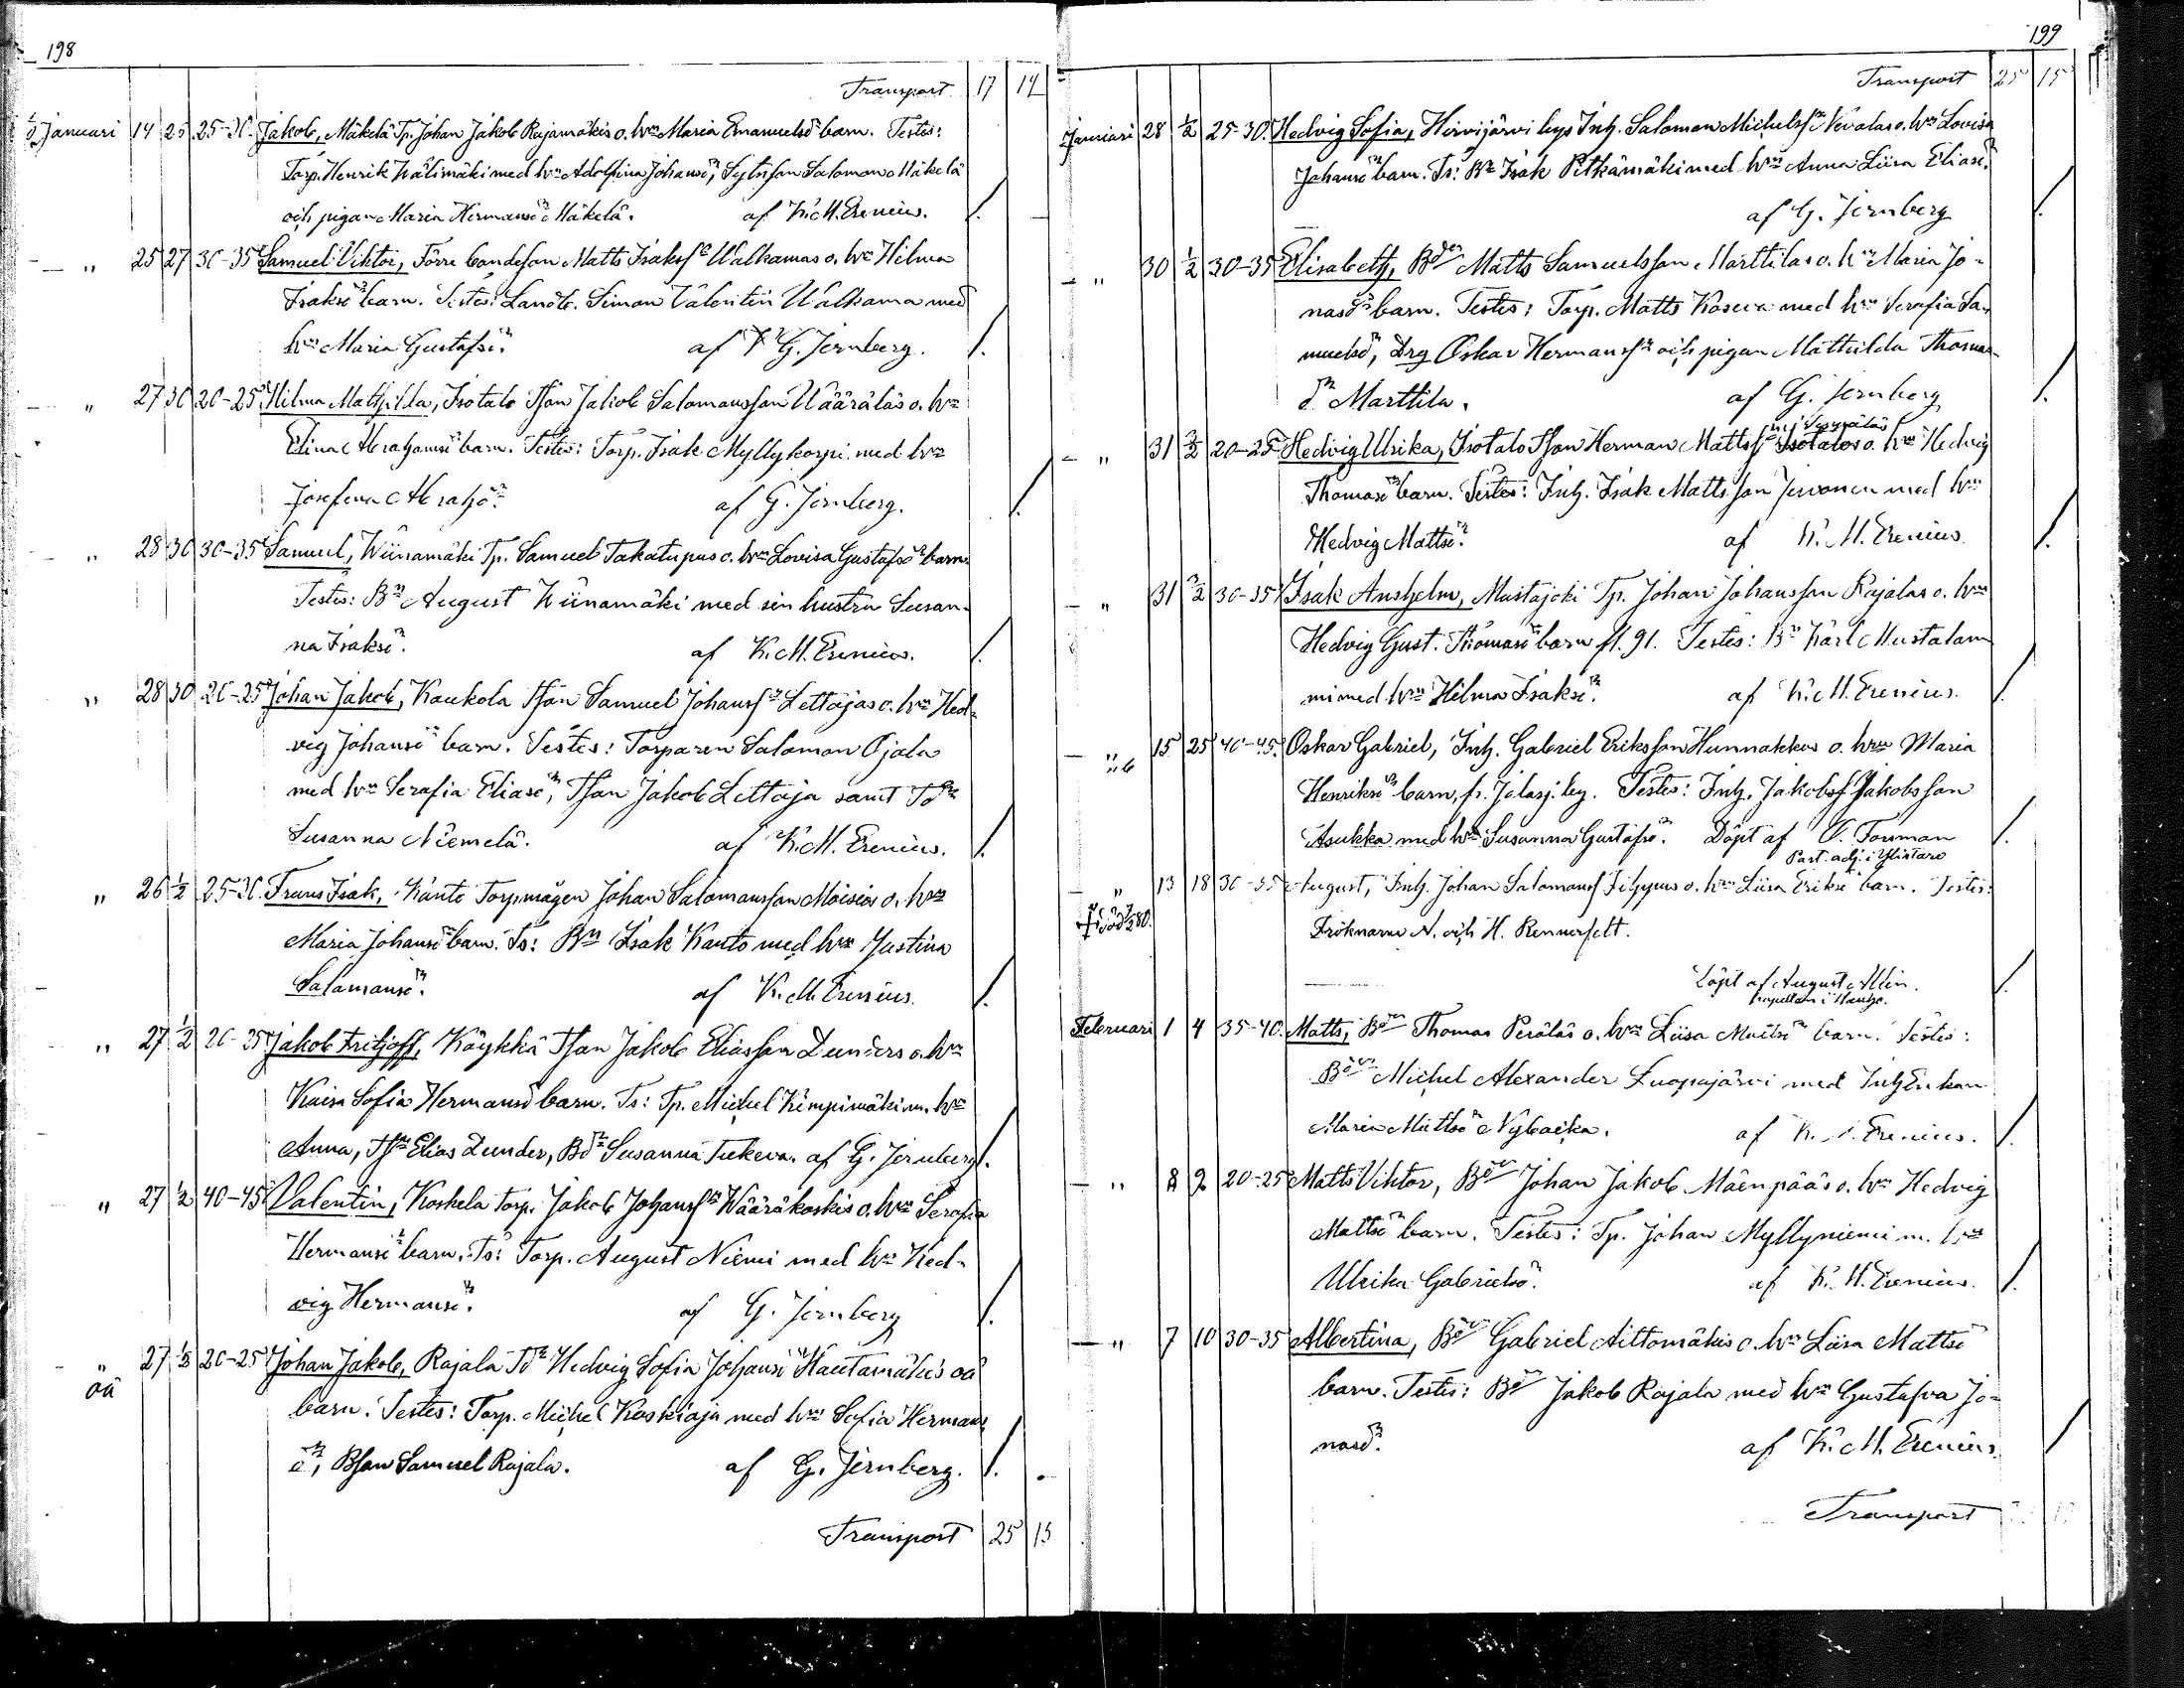 198
Transport 17 14
Januari 14 25 25-30. Jakob, Mäkelä Tp. Johan Jakob Rajamäkis o. hn Maria Emanuelsdr barn. Testes:
Torp. Henrik Wälimäki med hn Adolfina Johansdr, Salomon Mäkelä
och pigan Maria Hermansdr Mäkelä. af K. M. Erenius. /.
" 25 27 30-35 Samuel Viktor, Förre bondeson Matts Isakss Walkamas o. hn Hilma
Isaksdr barn. Testes: Landb. Simon Valentin Walkama med
hn Maria Gustafsdr. af G. Jernberg. /.
" 27 30 20-25 Hilma Mathilda, Isotalo Tson Jakob Salomonsson Wääräläs o. hn
Elina Abrahamsdr barn. Testes: Torp. Isak Myllykorpi med hn
Josefina Abrahdr. af G. Jernberg. /.
" 28 30 30-35 Samuel, Wiinamäki Tp. Samuel Takatupas o. hn Lovisa Gustafsdr barn.
Testes: Bn August Wiinamäki med sin hustru Susan-
na Isaksdr. af K. M. Erenius. /.
" 28 30 20-25 Johan Jakob, Kaukola Tson Samuel Johanss Lettojas o. hn Hed-
vig Johansdr barn. Testes: Torparen Salomon Ojala
med hn Serafia Eliasdr, Tson Jakob Lettoja samt Tdr
Susanna Niemelä. af K. M. Erenius. /.
" 26 1/2 25-30. Frans Isak, Kanto Torpmågen Johan Salomonsson Moisios o. hn
Maria Johansdr barn. Ts: Bn Isak Kanto med hn Justina
Salomonsdr. af K. M. Erenius. /.
" 27 1/2 20-25 Jakob Fritjoff, Käykkä Tson Jakob Eliasson Lunders o. hn
Kaisa Sofia Hermansdr barn. Ts: Tp. Michel Kimpimäki m. hn
Anna, Tsn Elias Lunder, Bdr Susanna Tukeva. af G. Jernberg /.
" 27 1/2 40-45 Valentin, Koskela Torp. Jakob Johanss Wääräkoskis o. hn Serafia
Hermansdr barn. Ts: Torp. August Niemi med hn Hed-
vig Hermansdr. af G. Jernberg /.
" 27 1/2 20-25 Johan Jakob, Rajala Tdr Hedvig Sofia Johansdr Hautamäkis oä
oä barn. Testes: Torp. Michel Koskioja med hn Sofia Hermans
dr, Bson Samuel Rajala. af G. Jernberg. /.
Transport 25 15
199
Transport 25 15
Januari 28 1/2 25-30. Hedvig Sofia, Hirvijärvi bys Inh. Salomon Michelss Nevalas o. hn Lovisa
Johansdr barn. Ts: Bn Isak Pitkämäki med hn Anna Liisa Eliasdr.
af G. Jernberg /.
" 30 1/2 30-35 Elisabeth, Bdn Matts Samuelsson Marttilas o. hn Maria Jo-
nasdr barn. Testes: Torp. Matts Koseva med hn Serafia Sa-
muelsdr, Drg Oskar Hermanss och pigan Mathilda Thomas-
dr Marttila. af G. Jernberg /.
" 31 2/2 20-25 Hedvig Ulrika, Isotalo Tson Herman Mattss Isotalos o. hn Hedvig
Thomasdr barn. Testes: Inh. Isak Mattsson Jevonen med hn
Hedvig Mattsdr. af K. M. Erenius. /.
" 31 2/2 30-35 Isak Anshelm, Mustajoki Tp. Johan Johansson Rajalas o. hn
Hedvig Gust. Thomasdr barn fl. 91. Testes: Bn Karl Mustalam
mi med hn Hilma Isaksdr. af K. M. Erenius. /.
" 15 25 40-45. Oskar Gabriel, Inh. Gabriel Eriksson Hunnakkos o. hn Maria
Henriksdr barn, fr. Jalasj. by. Testes: Inh. Jakob Jakobsson
Asukka med hn Susanna Gustafsdr. Döpt af O. Forsman /.
Past. adj. i Ylistaro
" 13 18 30-35 August, Inh. Johan Salomonss Filppus o. hn Liisa Eriksdr barn. Testes:
Fröknarna N. och H. Rennerfelt.
Döpt af August Alin. /.
kapellan i Kauhj.
Februari 1 4 35-40. Matts, Bdn Thomas Peräläs o. hn Liisa Mattsdr barn. Testes:
Bdn Michel Alexander Luopajärvi med Inh. Enkan
Maria Mattsdr Nybacka. af K. M. Erenius. /.
" 8 9 20-25 Matts Viktor, Bdn Johan Jakob Mäenpääs o. hn Hedvig
Mattsdr barn. Testes: Tp. Johan Myllyniemi m. hn
Ulrika Gabrielsdr. af K. M. Erenius. /.
" 7 10 30-35 Albertina, Bdn Gabriel Aittomäkis o. hn Liisa Mattsdr
barn. Testes: Bdn Jakob Rajala med hn Gustafva Jo-
nasdr. af K. M. Erenius. /
Transport